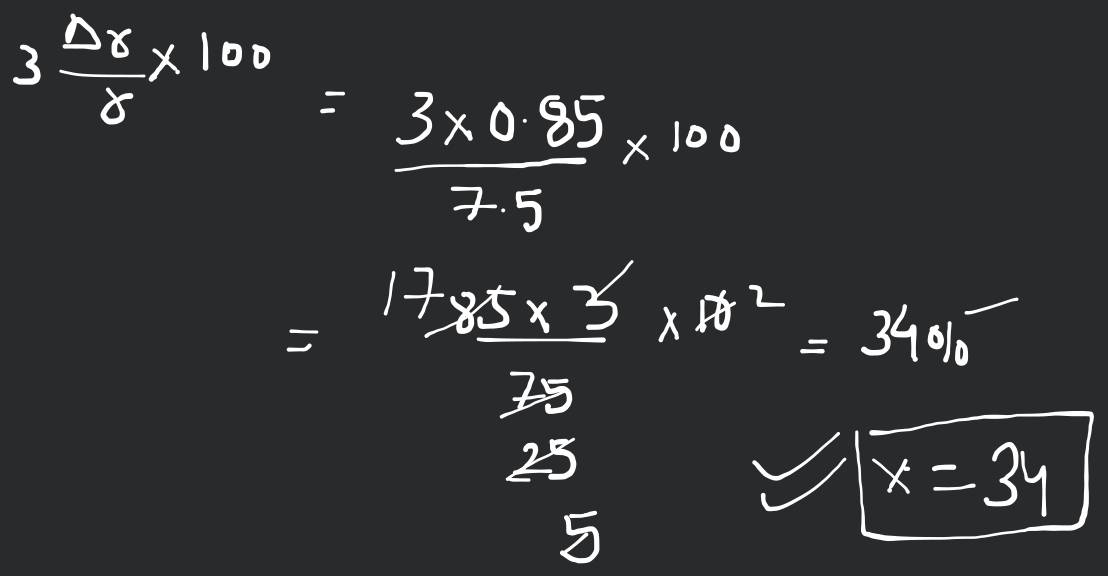 3 Δr/r × 100 = (3 × 0.85)/7.5 × 100
= 17 85 × 3 / 75 25 5 × 10 2 = 34%
x = 34